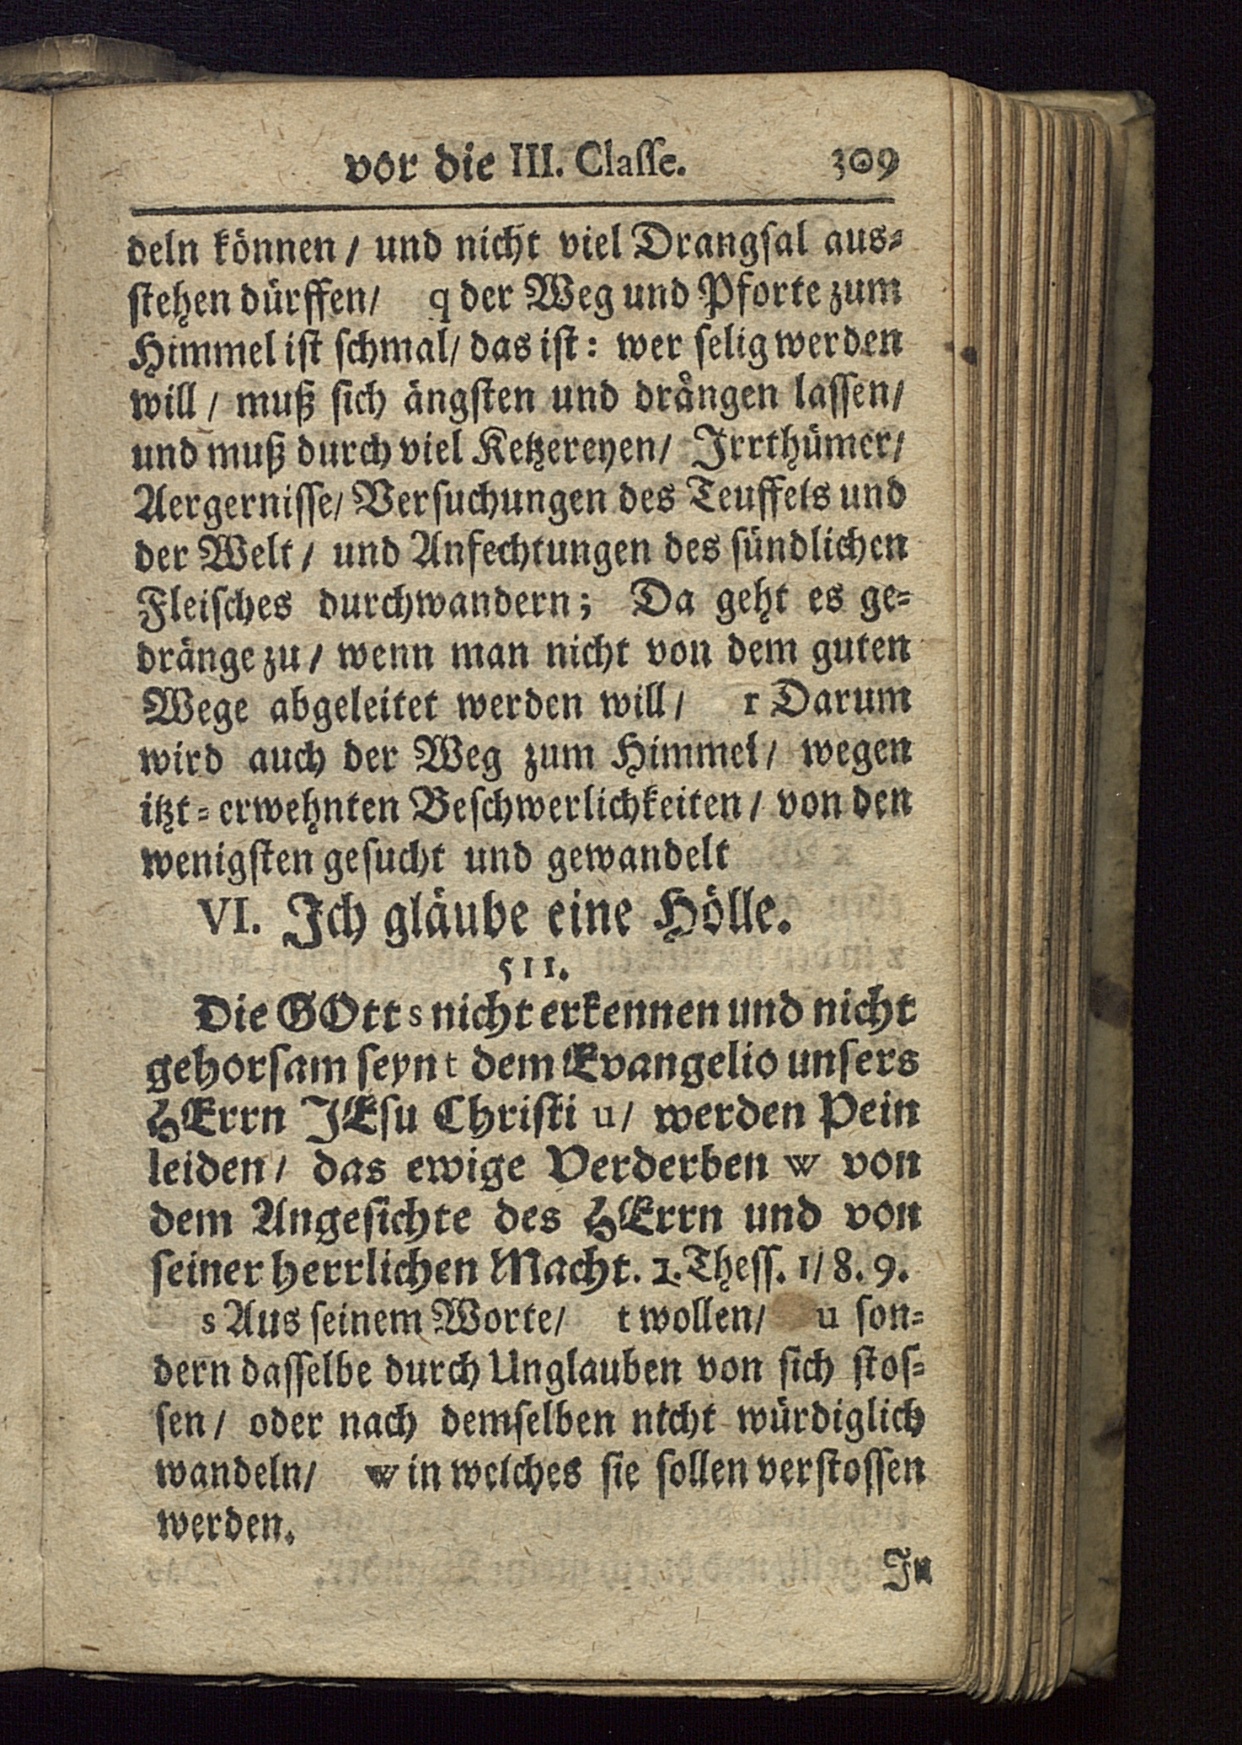 vor die III. Classe. 309
deln können / und nicht viel Drangsal aus-
stehen dürffen/ q der Weg und Pforte zum
Himmel ist schmal/ das ist: wer selig werden
will / muß sich ängsten und drången lassen/
und muß durch viel Ketzereyen/ Irrthümer/
Aergernisse/ Versuchungen des Teuffels und
der Welt / und Anfechtungen des sündlichen
Fleisches durchwandern; Da geht es ge-
dränge zu / wenn man nicht von dem guten
Wege abgeleitet werden will / r Darum
wird auch der Weg zum Himmel / wegen
itzt-erwehnten Beschwerlichkeiten / von den
wenigsten gesucht und gewandelt
VI. Ich gläube eine Hölle.
511.
Die GOtt s nicht erkennen und nicht
gehorsam seyn t dem Evangelio unsers
HErrn JEsu Christi u/ werden Pein
leiden / das ewige Verderben w von
dem Angesichte des HErrn und von
seiner herrlichen Macht. 2. Thess. 1/ 8. 9.
s Aus seinem Worte/ t wollen/ u son-
dern dasselbe durch Unglauben von sich stos-
sen / oder nach demselben nicht würdiglich
wandeln/ w in welches sie sollen verstossen
werden.
In